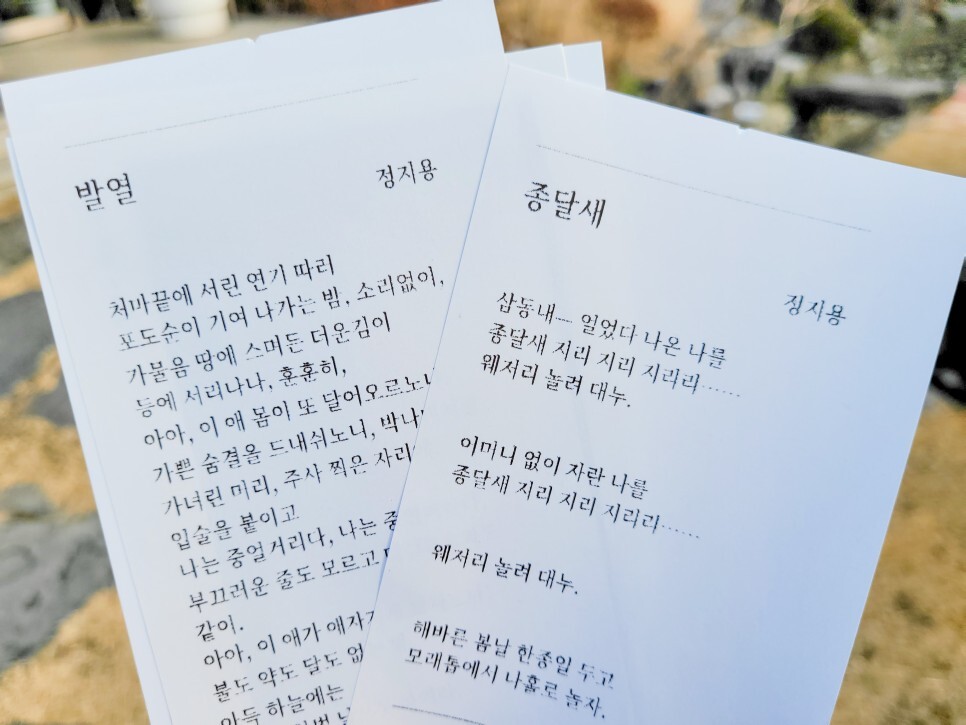 발열
정지용
처마끝에 서린 연기 따러
포도순이 기여 나가는 밤, 소리없이,
가물음 땅에 스며든 더운김이
등에 서리나니, 훈훈히,
아아, 이 애 몸이 또 달어오르노나
가쁜 숨결을 드내쉬노니, 박나
가녀린 머리, 주사 찍은 자리
입술을 붙이고
나는 중얼거리다, 나는 중
부끄러운 줄도 모르고
같이.
아아, 이 애가 애자
불도 약도 달도 없
아득 하늘에는
종달새
정지용
삼동내— 얼었다 나온 나를
종달새 지리 지리 지리리……
웨저리 놀려 대누.
어머니 없이 자란 나를
종달새 지리 지리 지리리……
웨저리 놀려 대누.
해바른 봄날 한종일 두고
모래톱에서 나홀로 놀자.